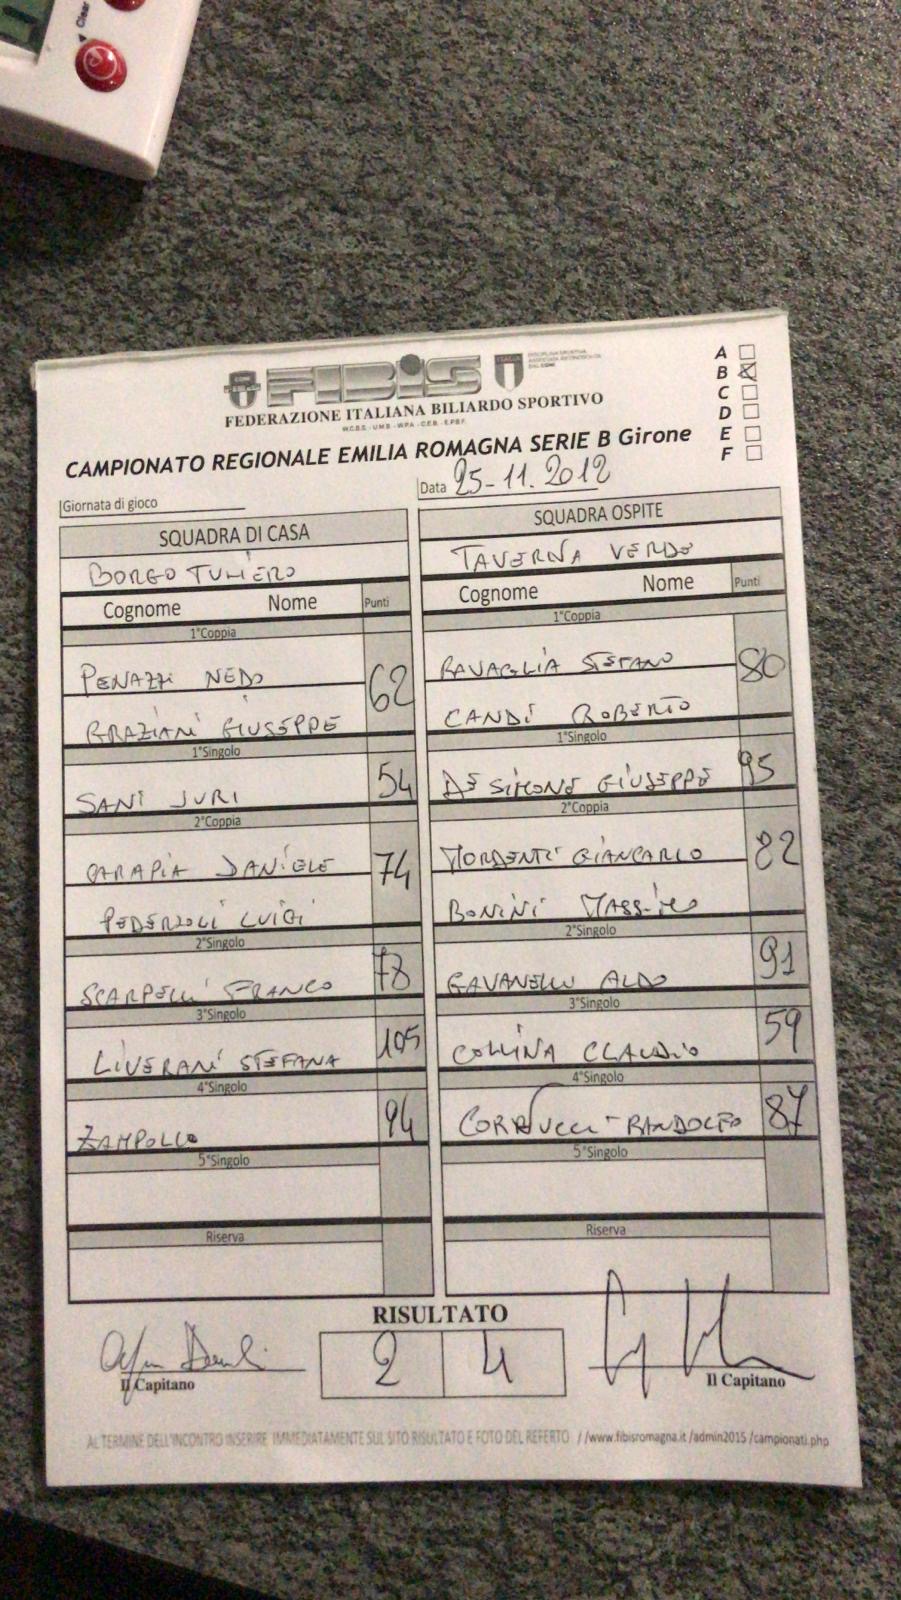 Clear
FIBiS
ITALIA
FEDERAZIONE ITALIANA BILIARDO SPORTIVO
W.C.B.S. - U.M.B. - W.P.A. - C.E.B. - E.P.B.F.
A
B
C
D
E
F
CAMPIONATO REGIONALE EMILIA ROMAGNA SERIE B Girone
Giornata di gioco
Data 25-11.2012
SQUADRA DI CASA SQUADRA OSPITE
BORGO TULIERO TAVERNA VERDE
Cognome Nome Punti Cognome Nome Punti
1°Coppia 1°Coppia
PENAZZI NEDO 62 RAVAGLIA STEFANO 80
GRAZIANI GIUSEPPE CANDI ROBERTO
1°Singolo 1°Singolo
SANI JURI 54 DE SIMONE GIUSEPPE 95
2°Coppia 2°Coppia
CARAPIA DANIELE 74 MORDENTI GIANCARLO 82
PEDERZOLI LUIGI BONINI MASSIMO
2°Singolo 2°Singolo
SCARPELLI FRANCO 78 GAVANELLI ALDO 91
3°Singolo 3°Singolo
LIVERANI STEFANA 105 COLLINA CLAUDIO 59
4°Singolo 4°Singolo
ZAMPOLLO 94 CORRUCCI RANDOLFO 87
5°Singolo 5°Singolo
Riserva Riserva
RISULTATO
2 4
Il Capitano Il Capitano
AL TERMINE DELL'INCONTRO INSERIRE IMMEDIATAMENTE SUL SITO RISULTATO E FOTO DEL REFERTO //www.fibisromagna.it/admin2015/campionati.php